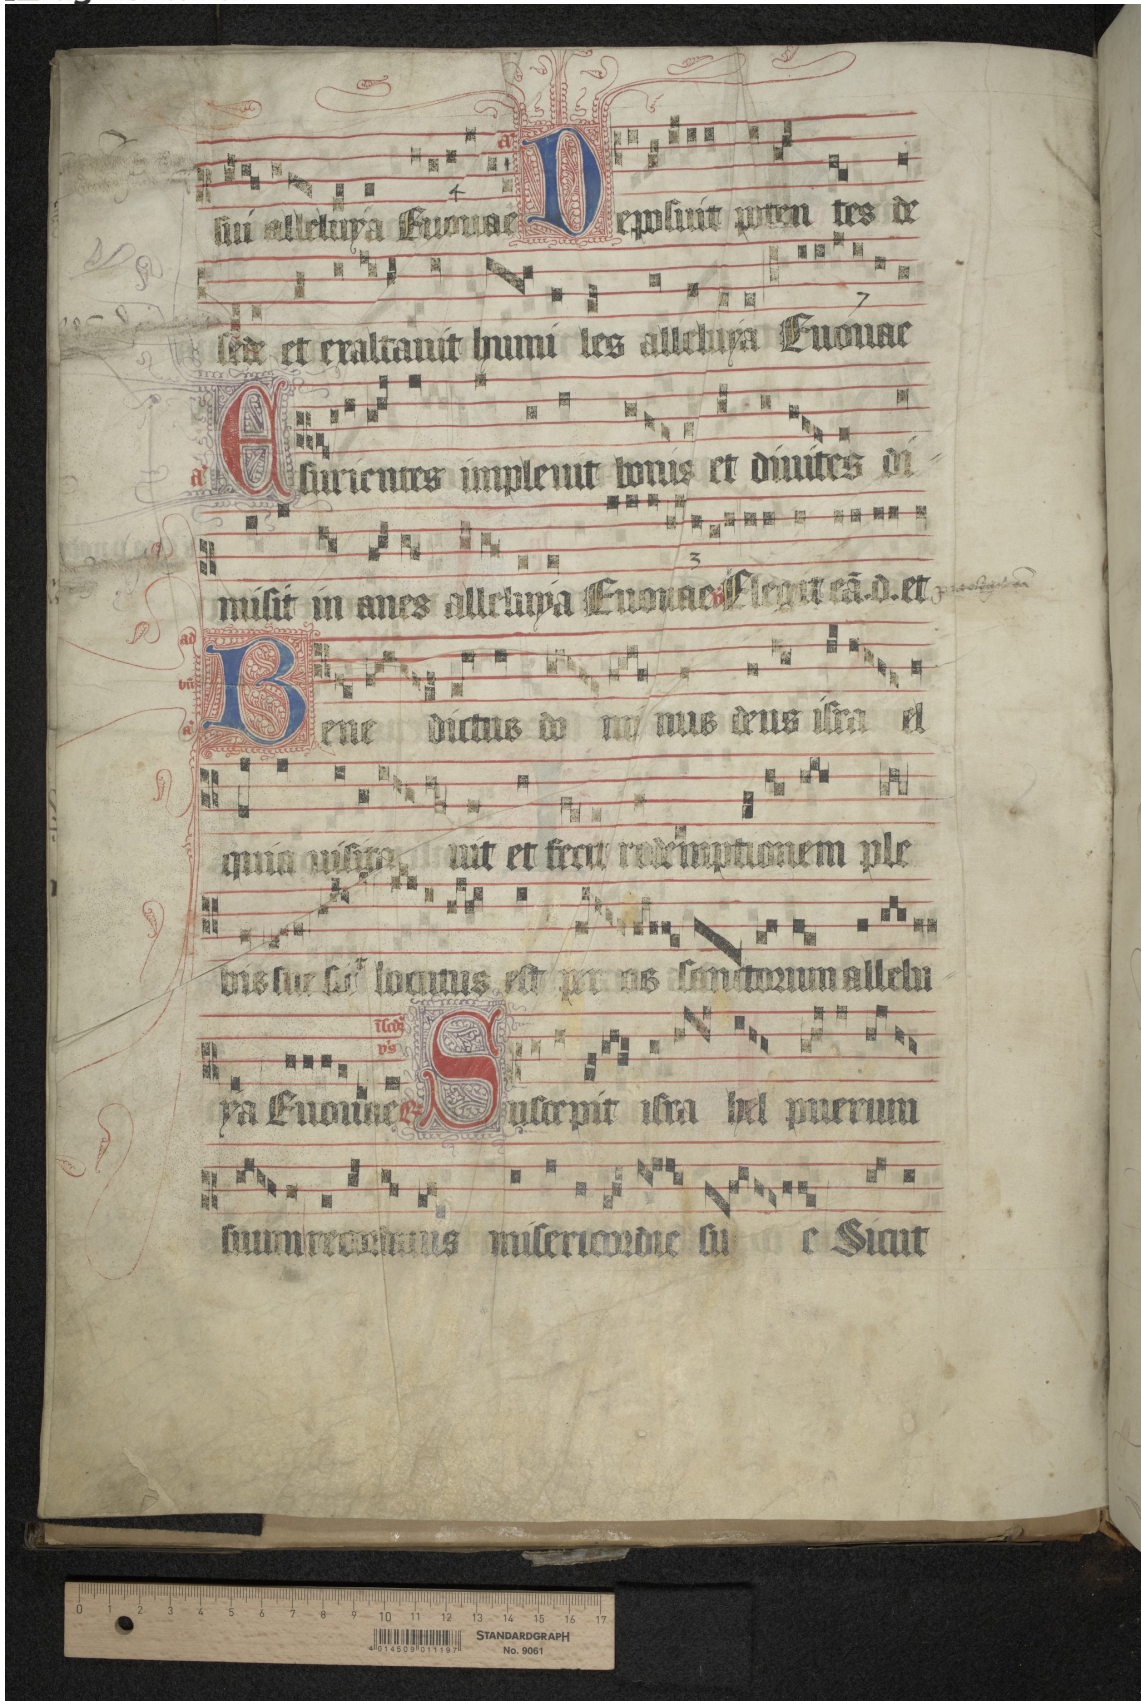 sui alleluya Euouae a Deposuit poten tes de
4
sede et exaltauit humi les alleluya Euouae
7
a Esurientes impleuit bonis et diuites di
misit in anes alleluya Euouae Elegit eā.d.et
3
ad
bn̄
a
Bene dictus do mi nus deus isra el
quia uisita uit et fecit redemptionem ple
bis sue locutus est per os sanctorum allelu
ya Euouae Suscepit isra hel puerum
suum recordatus misericordie su e Sicut
0 1 2 3 4 5 6 7 8 9 10 11 12 13 14 15 16 17
4 014509 011197
STANDARDGRAPH
No. 9061